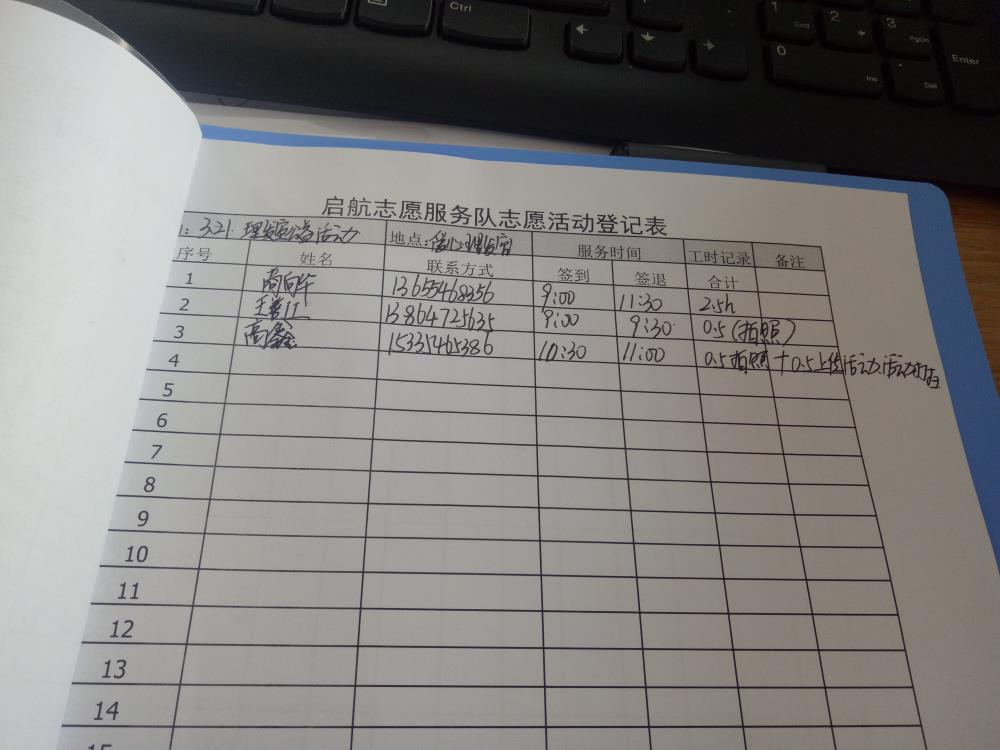 Ctrl
1 End
2
3 PgDn
0 Ins
. Del
Enter
启航志愿服务队志愿活动登记表
: 3.21. 理发室公益活动 地点: 理发店 服务时间 工时记录 备注
序号 姓名 联系方式 签到 签退 合计
1 高向华 13655468356 9:00 11:30 2.5h
2 王 江 13864725635 9:00 9:30 0.5 (拍照)
3 高鑫 15335465386 10:30 11:00 0.5拍照 + 0.5上传活动.活动
4
5
6
7
8
9
10
11
12
13
14
15